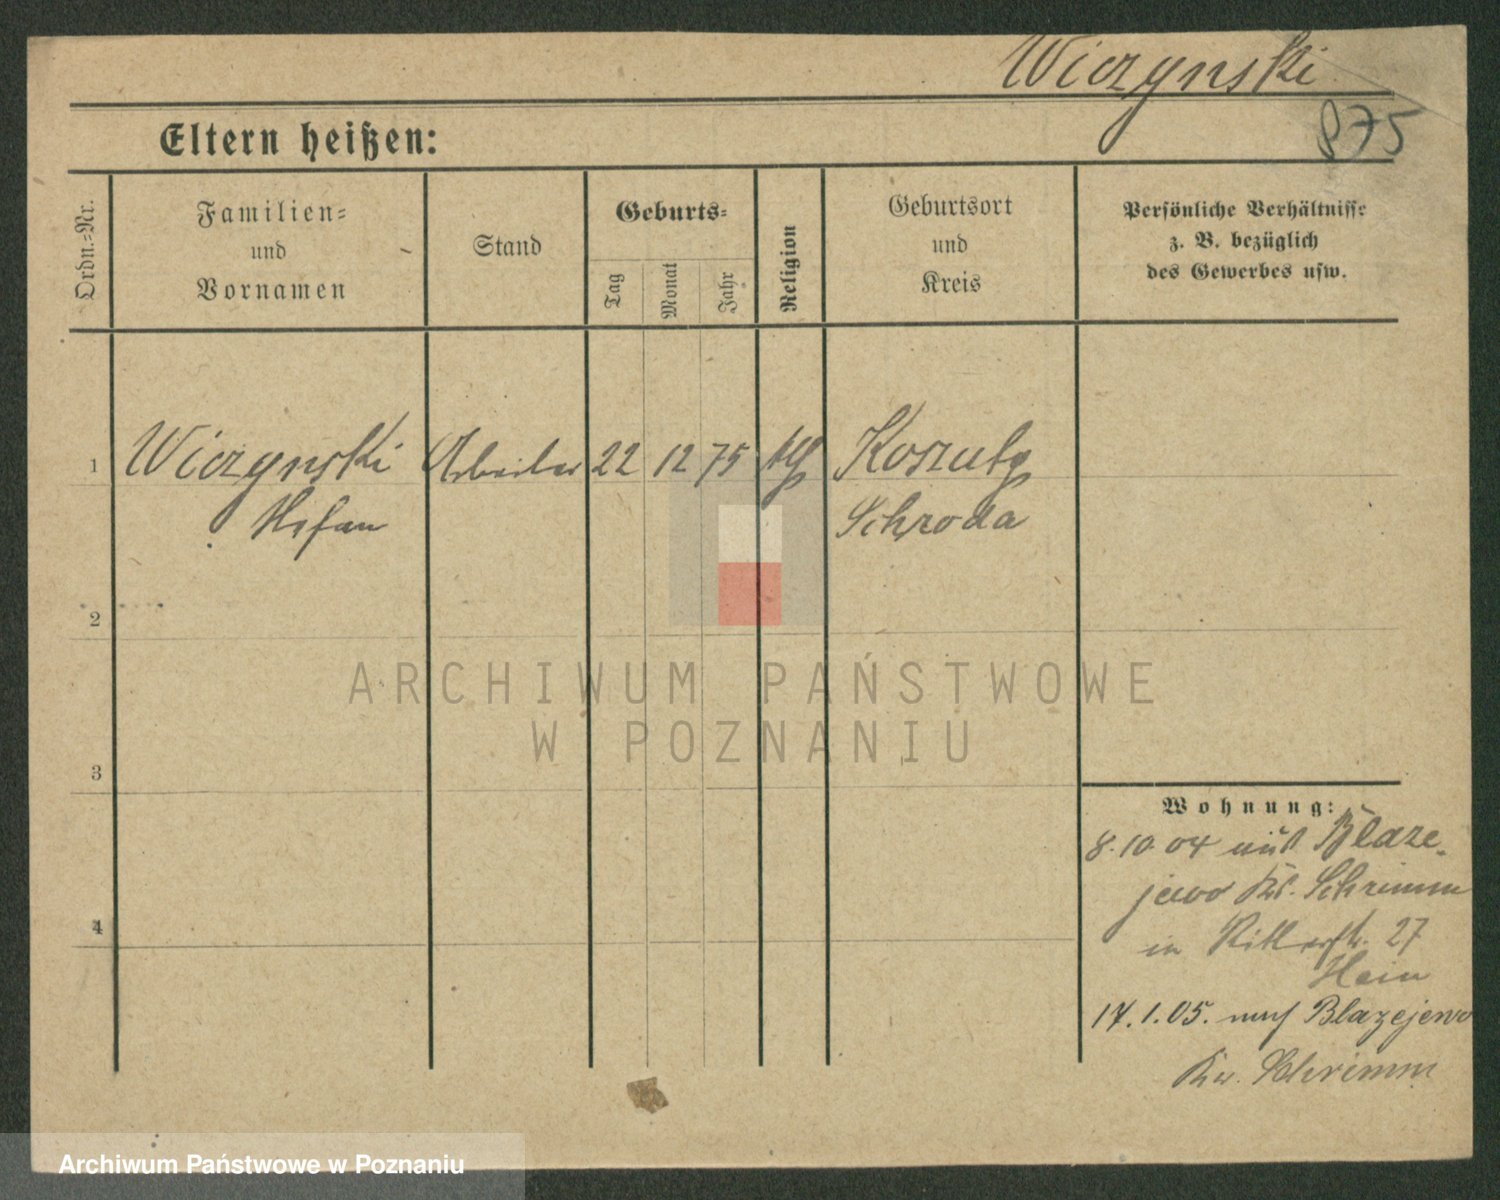 Wiczynski
875
Eltern heißen:
Ordn.=Nr.
Familien=
und
Vornamen
Stand
Geburts=
Tag
Monat
Jahr
Religion
Geburtsort
und
Kreis
Persönliche Verhältnisse
z. B. bezüglich
des Gewerbes usw.
1
Wiczynski Arbeiter 22 12 75 Koszuty
Stefan Schroda
2
3
4
Wohnung:
8.10.04 aus Blaze-
jewo Kr. Schrimm
in Ritterstr. 27
17.1.05. nach Blazejewo
Kr. Schrimm
ARCHIWUM PAŃSTWOWE
W POZNANIU
Archiwum Państwowe w Poznaniu